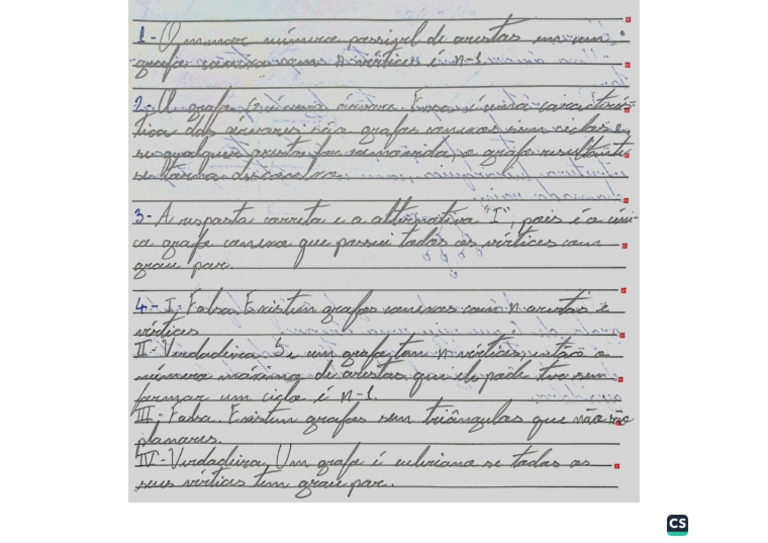 1- O menor número possível de arestas em um
grafo conexo com n vértices é n-1.
2- O grafo G é uma árvore. Essa é uma caracterís-
tica das árvores são grafos conexos sem ciclos e,
se qualquer aresta for removida, o grafo resultante
se torna desconexo.
3- A resposta correta e a alternativa "I", pois é o úni-
co grafo conexo que possui todos os vértices com
grau par.
4- I, Falsa. Existem grafos conexos com n arestas e
vértices
II- Verdadeira. Se um grafo tem n vértices, então o
número máximo de arestas que ele pode ter sem
formar um ciclo é n-1.
III- Falsa. Existem grafos sem triângulos que não são
planares.
IV- Verdadeira, Um grafo é euleriano se todos os
seus vértices tem grau par.
CS